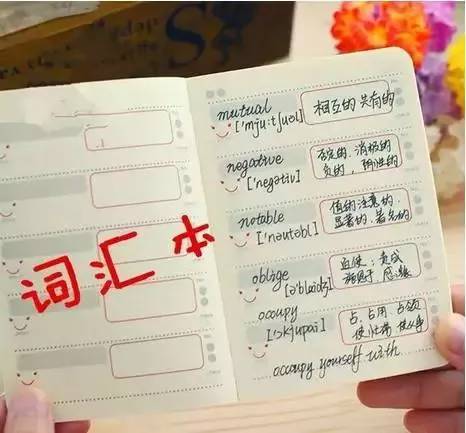 词汇本
mutual
['mju:tʃuəl]
相互的 共有的
negative
['negətiv]
否定的、消极的
负的、阴性的
notable
['nəutəbl]
值的注意的
显著的、著名的
oblige
[ə'blaidʒ]
迫使
occupy
['ɔkjupai]
占、占用、占领
occupy yourself with